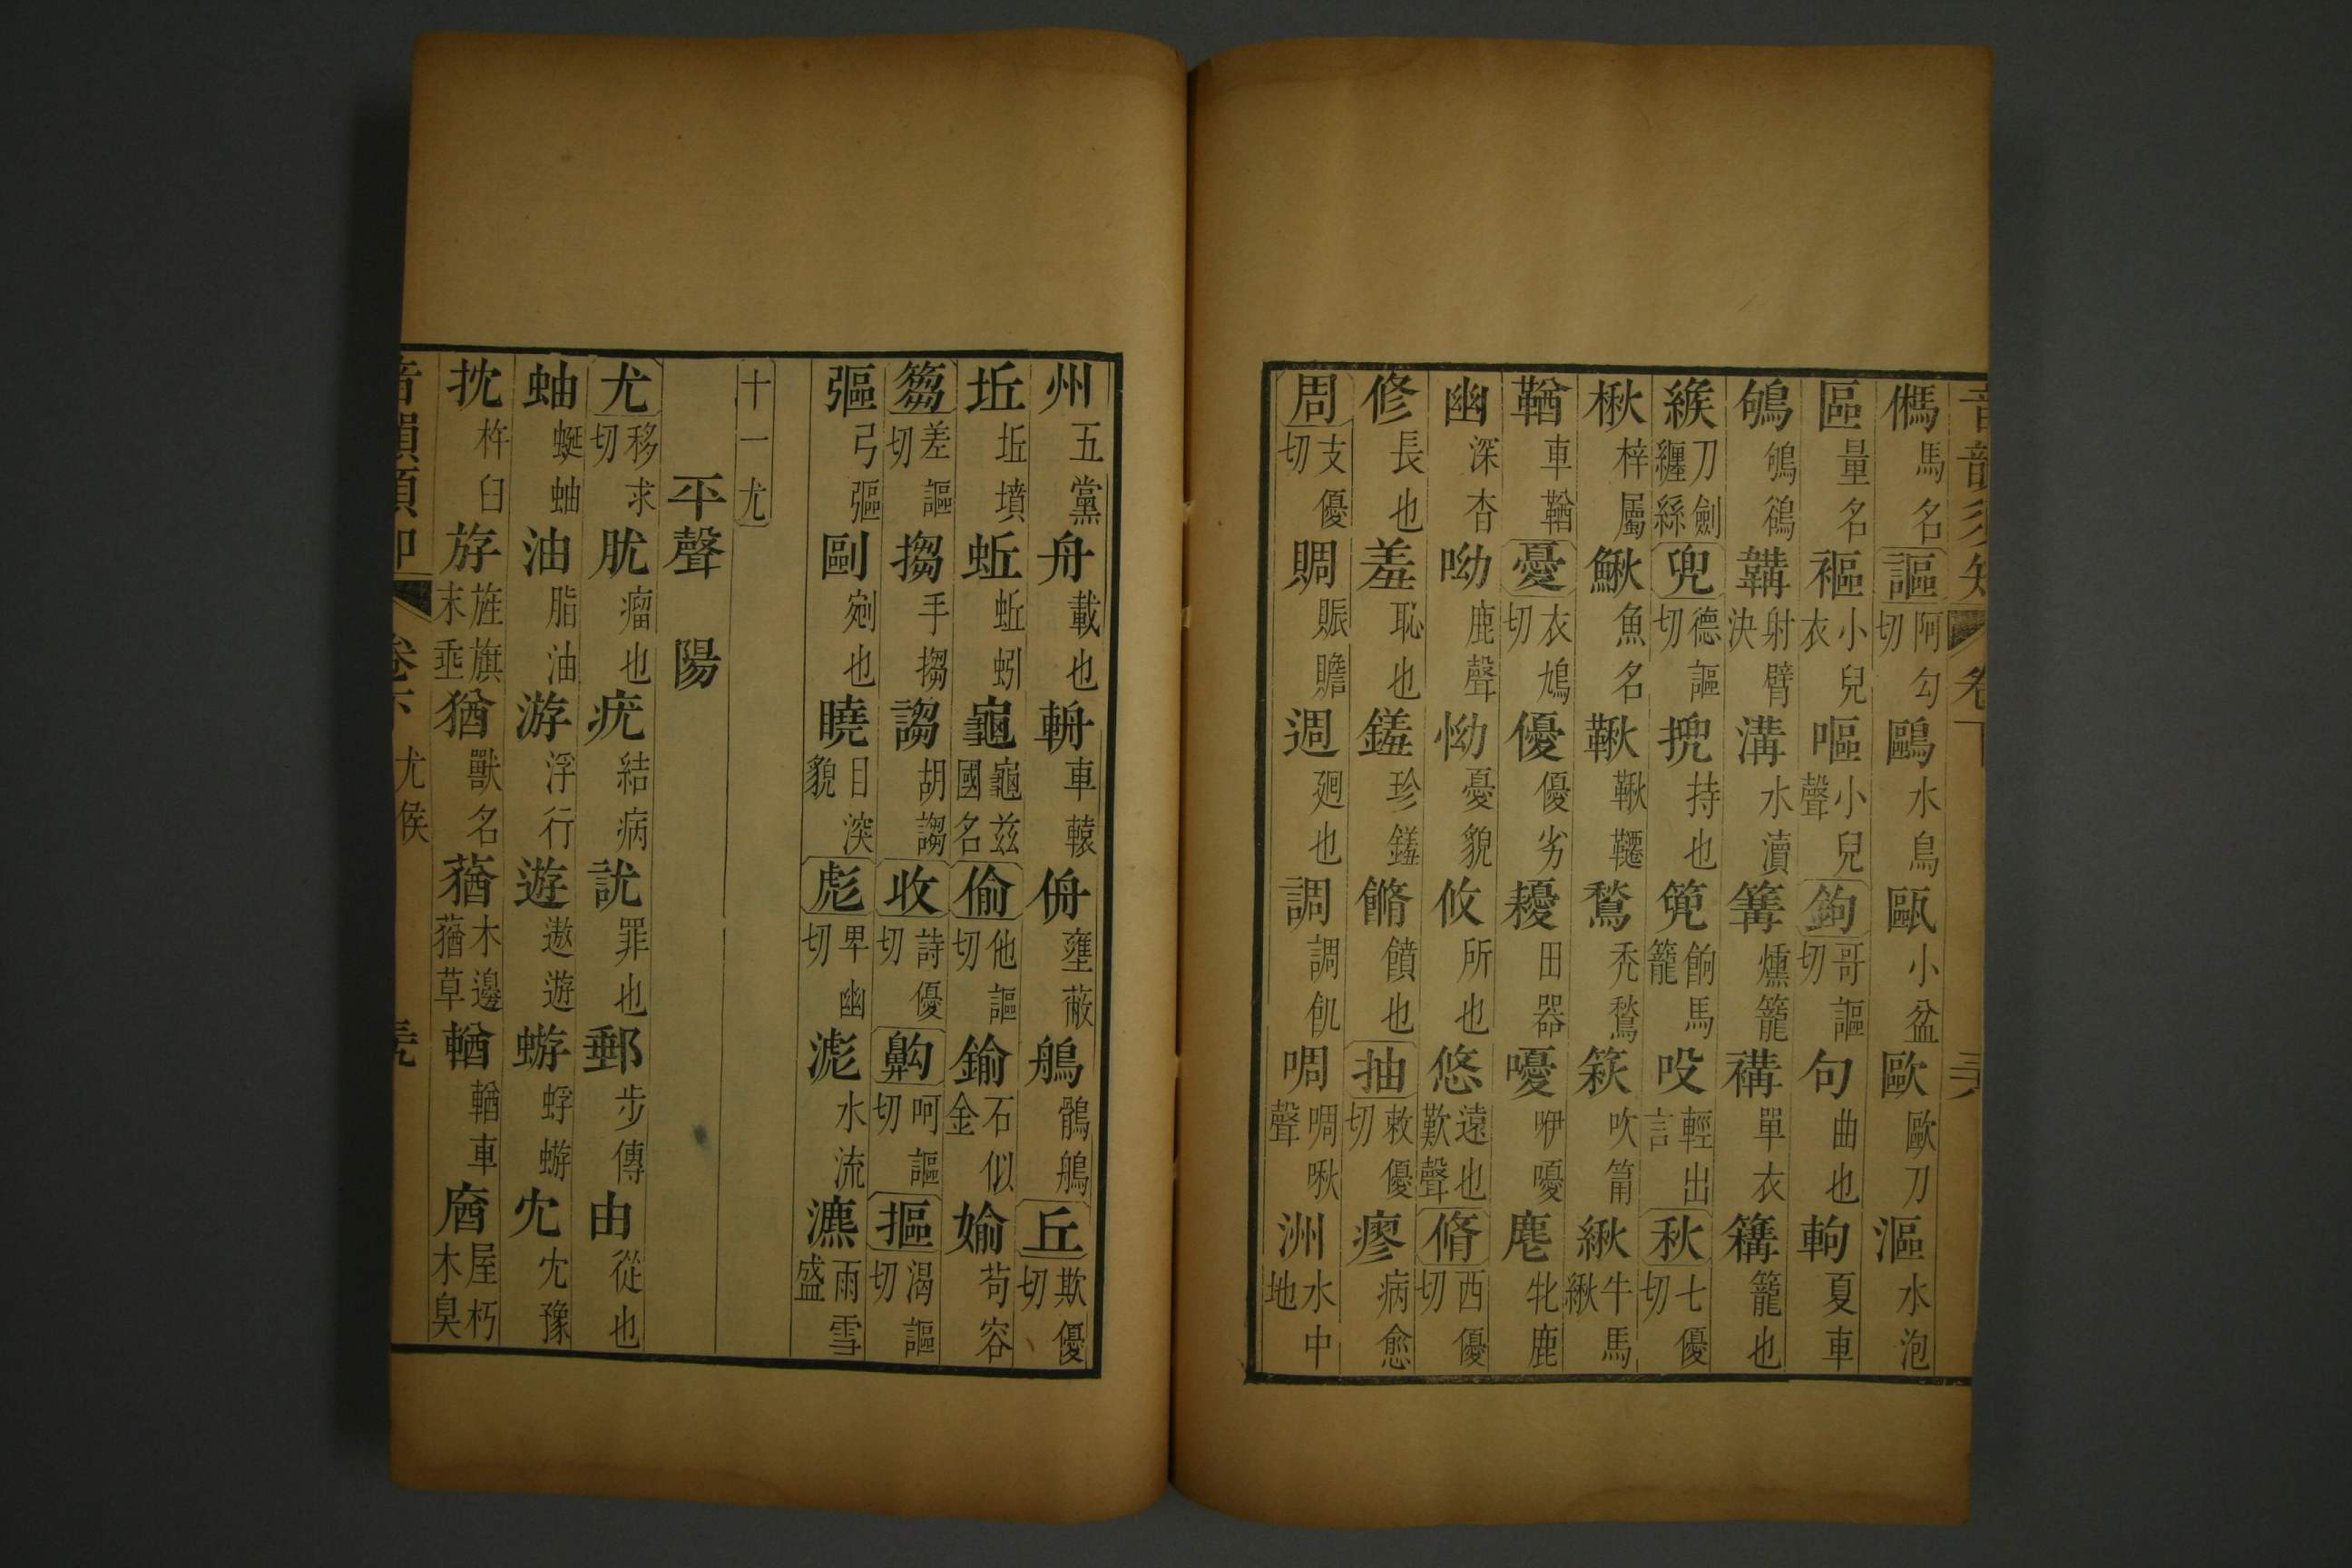 音韻須知 卷下
傌馬名謳阿勾切鷗水鳥甌小盆歐歐刀漚水泡
區量名褔小兒衣嘔小兒聲鉤哥謳切句曲也軥夏車
鴝鴝鵒韝射臂決溝水瀆篝燻籠褠單衣籌籠也
緱刀劍纏絲兜德謳切掜持也篼飼馬籠吺輕出言秋七優切
楸梓屬鰍魚名鞦鞦韆鶖禿鶖篍吹筩緧牛馬緧
鞧車鞧憂衣鳩切優優劣耰田器嚘咿嚘麀牝鹿
幽深杳呦鹿聲怮憂貌攸所也悠遠也歎聲脩西優切
修長也羞恥也饈珍饈餙饋也抽敕優切瘳病愈
周支優切賙賑贍週廻也調調飢啁啁啾聲洲水中地
州五黨舟載也輈車轅侜壅蔽鵃鶻鵃丘欺優切
坵坵墳蚯蚯蚓龜龜茲國名偷他謳切鍮石似金媮苟容
篘差謳切搊手搊謅胡謅收詩優切齁呵謳切摳渴謳切
彄弓彄剾剜也曉日深貌彪卑幽切滮水流瀌雨雪盛
十一尤
平聲 陽
尤移求切肬瘤也疣結病訧罪也郵步傳由從也
蚰蜒蚰油脂油游浮行遊遨遊蝣蜉蝣冘冘豫
抌杵臼斿旌旗末垂猶獸名蕕木邊蕕草輶輶車庮屋朽木臭
音韻須知 卷下 尤侯